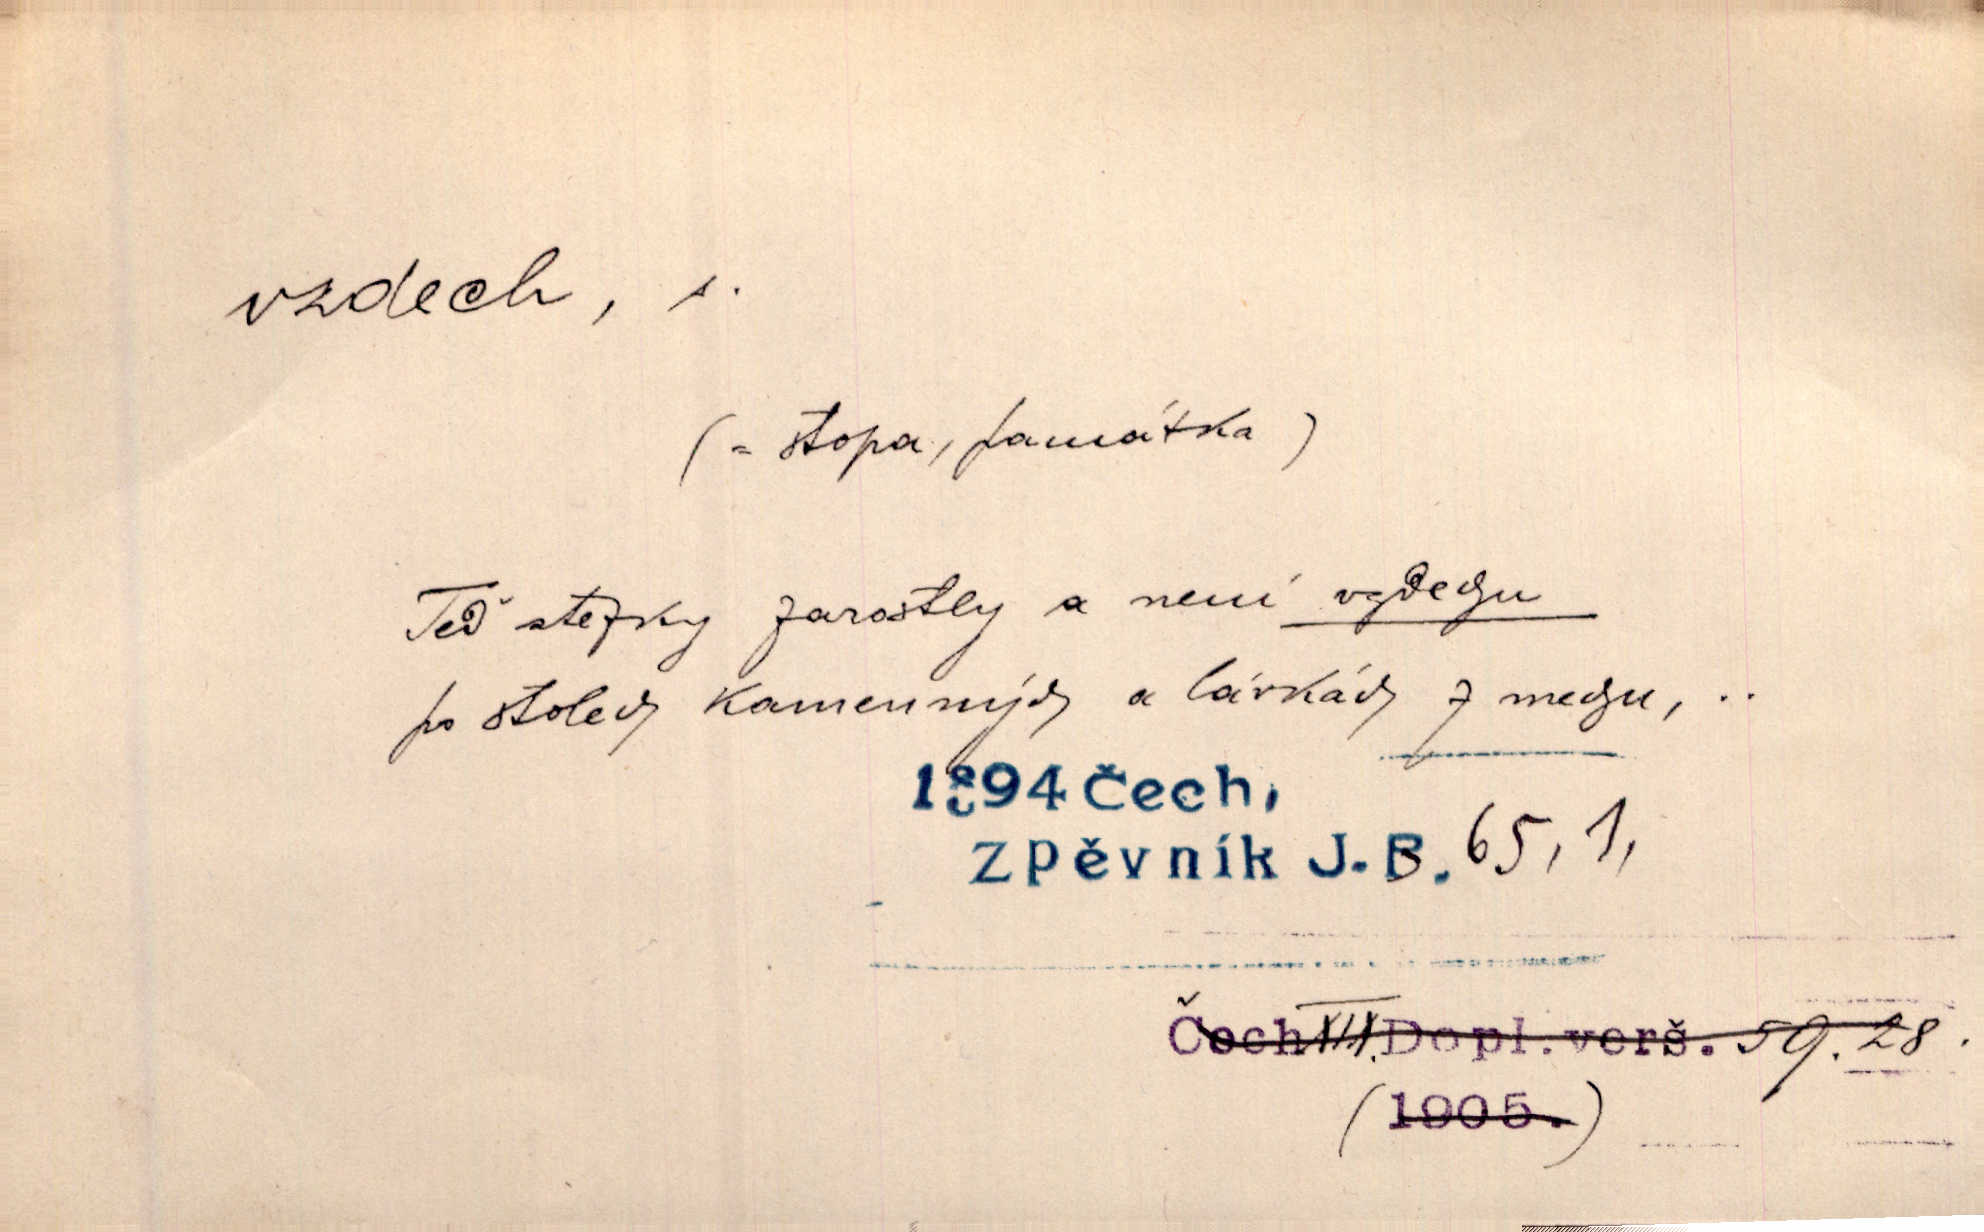 vzdech, s.
(= stopa, památka)
Teď stezky zarostly a není vzdechu
po stolech kamenných a lávkách z mechu, ..
1894 Čech,
Zpěvník J. B. 65, 1,
Čech XIX. Dopl. verš. 59. 28.
(1905.)